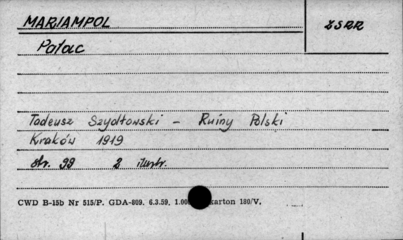 MARIAMPOL
ZSRR
Pałac
Tadeusz Szydłowski - Ruiny Polski
Kraków 1919
str. 99 2 ilustr.
CWD B-15b Nr 515/P. GDA-809. 6.3.59. 1.00 karton 180/V.